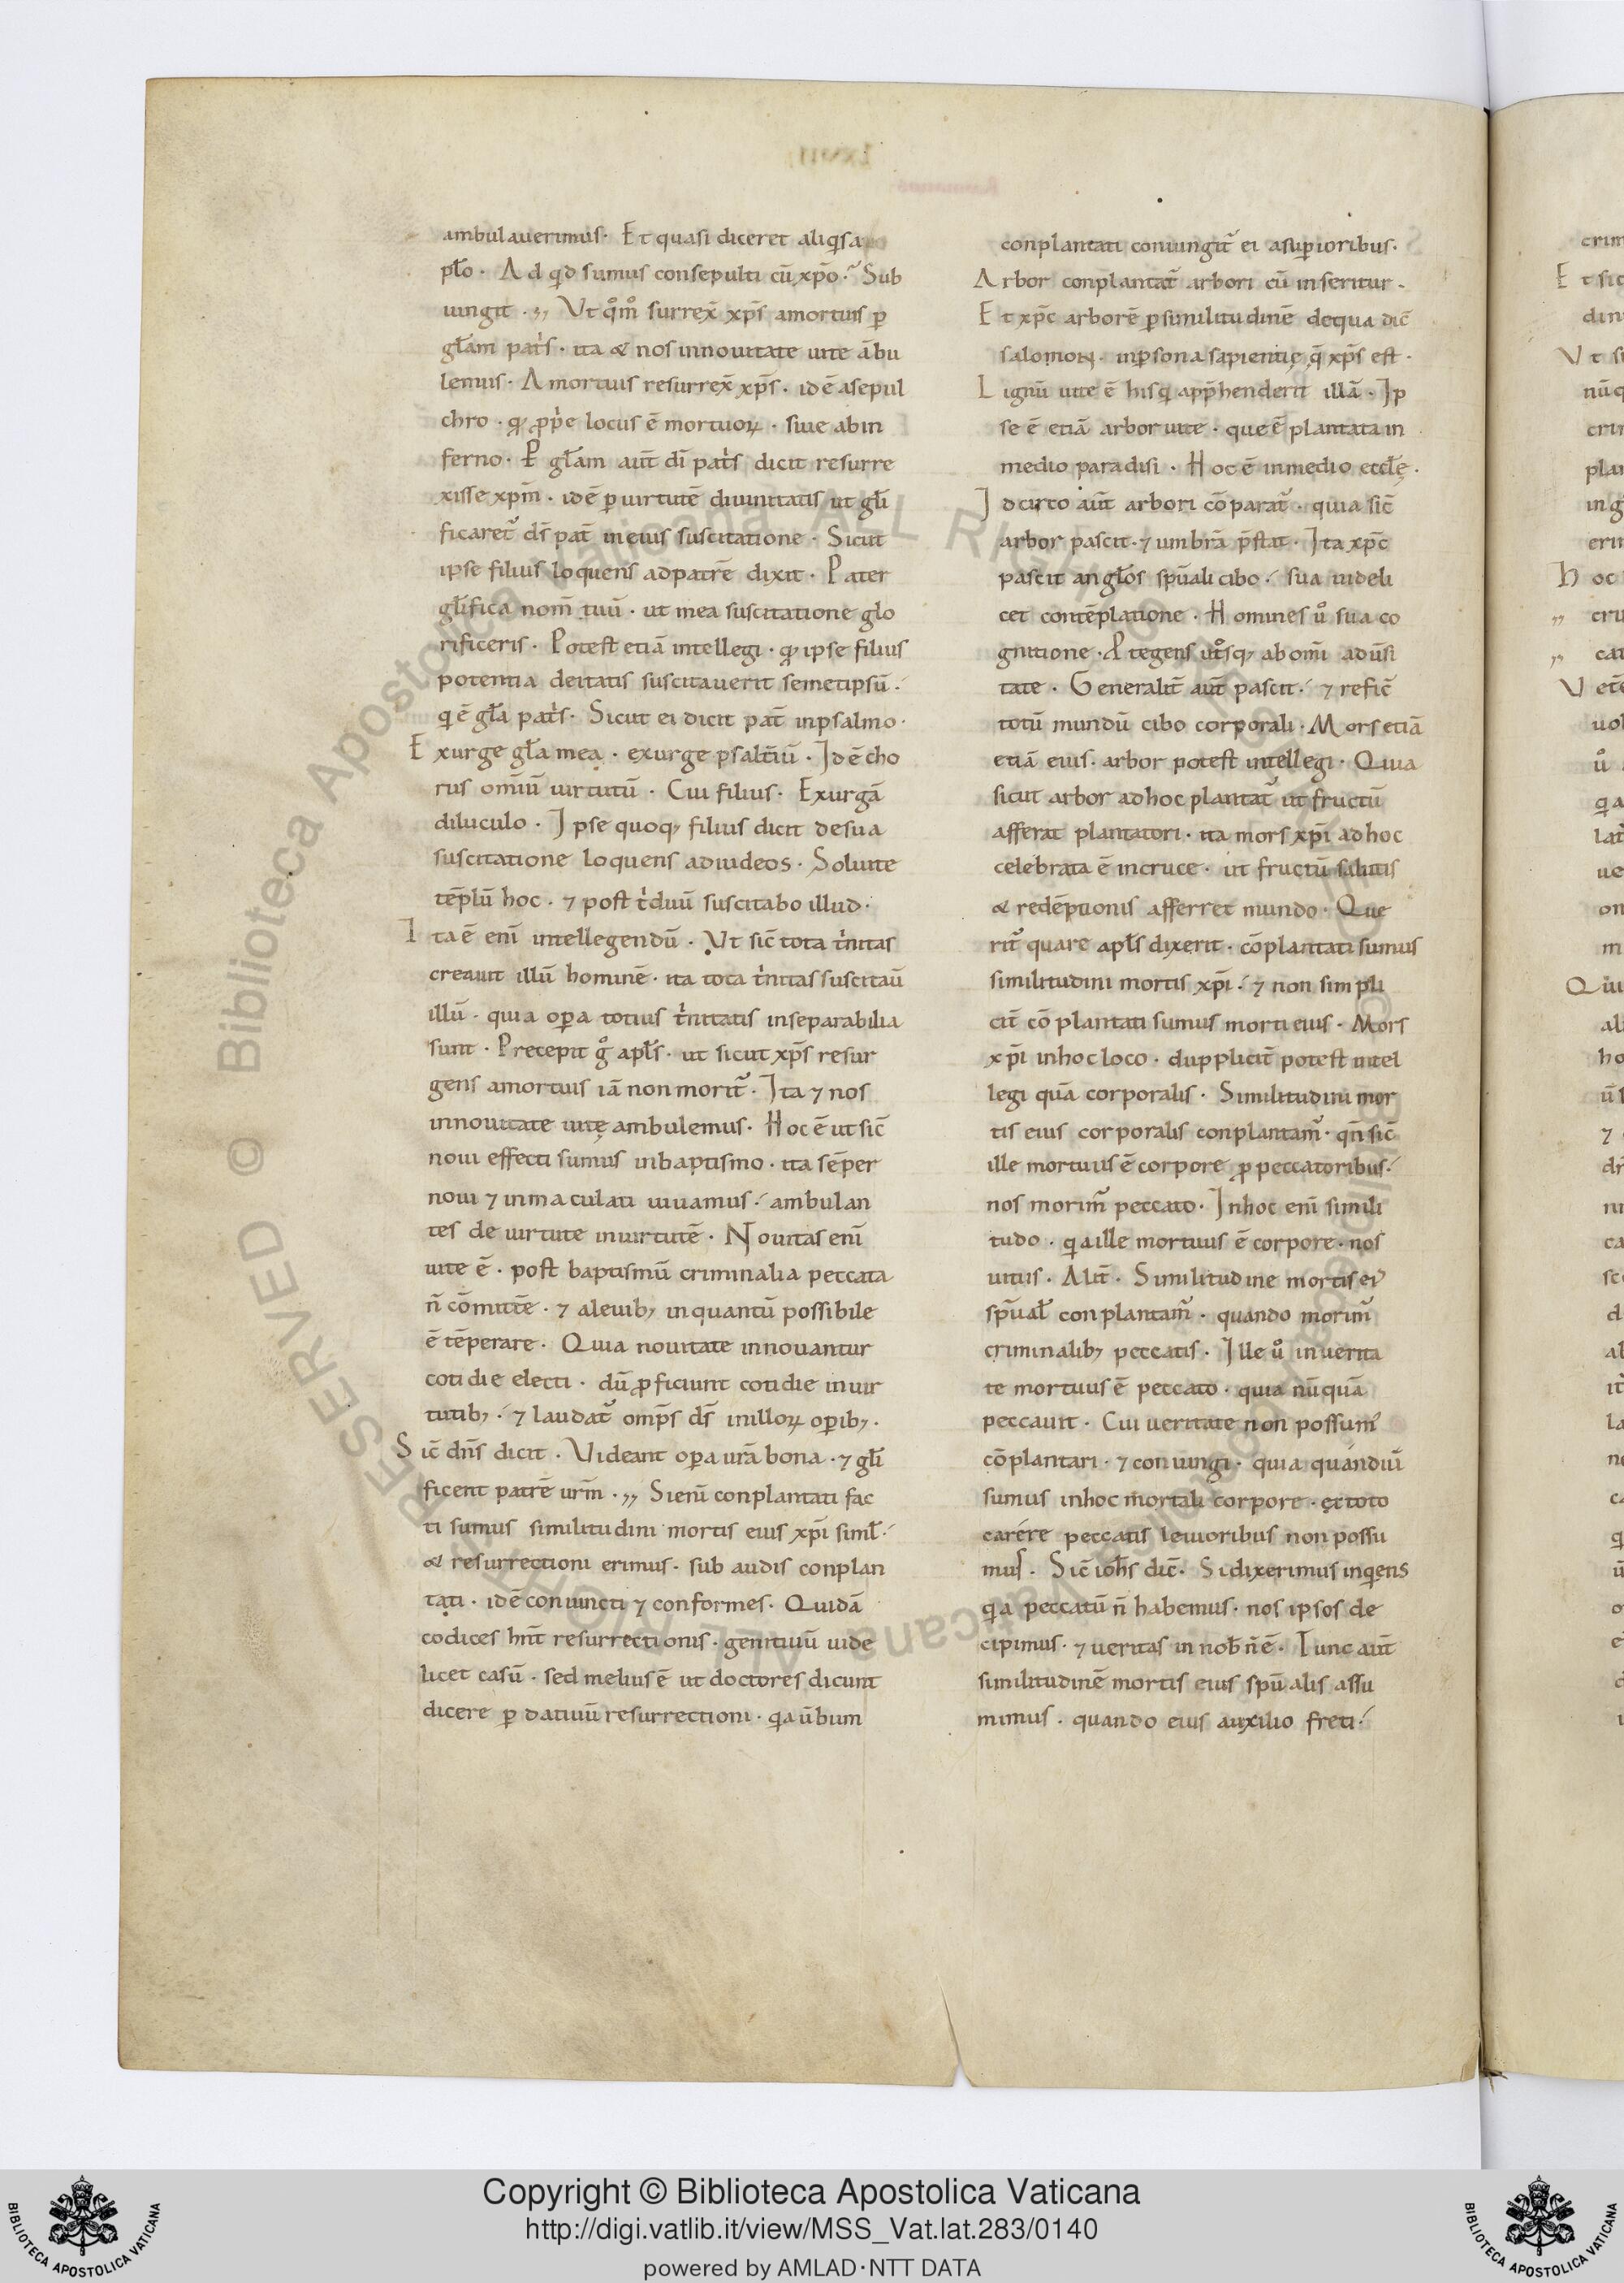 ambulauerimus· Et quasi diceret aliq̇s a
pl̄o· Ad qd̄ sumus consepulti cū xp̄o· Sub
iungit ·,, Vt qͦmͦ surrex̄ xp̄s amortuis ꝑ
gl̄am patˢ· ita & nos innouitate uite ābu
lemus· A mortuis resurrex̄ xp̄s· idē asepul
chro· qꝫ ꝓpͥe locus ē mortuoꝝ· siue abin
ferno· Ꝑ gl̄am aut̄ dī patˢ dicit resurre
xisse xpm̄· idē ꝑ uirtutē diuinitatis ut gl̄i
ficaret᷑ ds̄ pat̄ in eius suscitatione· Sicut
ipse filius loquens adpatrē dixit· Pater
gl̄ifica nom̄ tuū· ut mea suscitatione glo
rificeris· Potest etiā intellegi· qꝫ ipse filius
potentia deitatis suscitauerit semetipsū·
q̇ ē gl̄a patˢ· Sicut ei dicit pat̄ inpsalmo·
Exurge gl̄a mea· exurge psaltr̄iū· Idē cho
rus om̄iū uirtutū· Cui filius· Exurgā
diluculo· Ipse quoqꝫ filius dicit desua
suscitatione loquens adiudeos· Soluite
tēplū hoc· ⁊ post tͥduū suscitabo illud·
Ita ē enī intellegendū· Vt sic̄ tota tͥnitas
creauit illū hominē· ita tota tͥnitas suscitau̅
illū· quia oꝑa totius tͥnitatis inseparabilia
sunt· Precepit gͦ apl̄s· ut sicut xp̄s resur
gens amortuis iā non morit᷑· Ita ⁊ nos
innouitate uitę ambulemus· Hoc ē ut sic̄
noui effecti sumus inbaptismo· ita sēper
noui ⁊ inmaculati uiuamus· ambulan
tes de uirtute inuirtutē· Nouitas enī
uite ē· post baptismū criminalia peccata
n̄ cōmitte̅· ⁊ aleuibꝫ inquantū possibile
ē tēperare· Quia nouitate innouantur
cotidie electi· dū ꝓficiunt cotidie inuir
tutibꝫ· ⁊ laudat᷑ omp̄s ds̄ inilloꝝ oꝑibꝫ·
Sic̄ dn̄s dicit· Videant oꝑa urā bona· ⁊ gl̄i
ficent patrē urm̄·,, Sienī conplantati fac
ti sumus similitudini mortis eius xp̄i simł·
& resurrectioni erimus· sub audis conplan
tati· idē coniuncti ⁊ conformes· Quidā
codices hn̄t resurrectionis· genitiuū uide
licet casū· sed melius ē ut doctores dicunt
dicere ꝑ datiuū resurrectioni· q̇a ūbum
conplantati coniungit᷑ ei asuꝑioribus·
Arbor conplantat᷑ arbori cū inseritur·
Et xp̄c arborē ꝑsimilitudinē dequa dic̄
salomon· inꝑsona sapientię q̄ xp̄s est·
Lignū uite ē hisq̇ app̄henderit illā· Ip
se ē etiā arbor uite· que ē plantata in
medio paradisi· Hoc ē inmedio eccl̄ę·
Idcirco aut̄ arbori cōparat᷑· quia sic̄
arbor pascit· ⁊ umbrā p̄stat· Ita xp̄c
pascit angl̄os spūali cibo· sua uideli
cet contēplatione· Homines uͦ sua co
gnitione· Ptegens ut̊sqꝫ abomī adūsi
tate· Generalit̄ aut̄ pascit· ⁊ refic̄
totū mundū cibo corporali· Mors etiā
etiā eius· arbor potest intellegi· Quia
sicut arbor adhoc plantat᷑ ut fructū
afferat plantatori· ita mors xp̄i adhoc
celebrata ē incruce· ut fructū salutis
& redēptionis afferret mundo· Que
rit᷑ quare apl̄s dixerit· cōplantati sumus
similitudini mortis xp̄i· ⁊ non simpli
cit̄ cōplantati sumus morti eius· Mors
xp̄i inhoc loco· dupplicit̄ potest intel
legi quā corporalis· Similitudini mor
tis eius corporalis conplantam᷑· qn̄ sic̄
ille mortuus ē corpore ꝓ peccatoribus·
nos morim᷑ peccato· Inhoc enī simili
tudo· q̇a ille mortuus ē corpore· nos
uitiis· Alit̄· Similitudine mortis ei᷒
spūał conplantam᷑· quando morim᷑
criminalibꝫ peccatis· Ille uͦ inuerita
te mortuus ē peccato· quia nūquā
peccauit· Cui ueritate non possum᷒
cōplantari· ⁊ coniungi· quia quandiū
sumus inhoc mortali corpore· ex toto
carere peccatis leuioribus non possu
mus· Sic̄ ioh̄s dic̄· Sidixerimus inq̇ens
q̇a peccatū n̄ habemus· nos ipsos de
cipimus· ⁊ ueritas in nob̄ n̄ ē· Tunc aut̄
similitudinē mortis eius spūalis assu
mimus· quando eius auxilio freti·
Copyright © Biblioteca Apostolica Vaticana
http://digi.vatlib.it/view/MSS_Vat.lat.283/0140
powered by AMLAD·NTT DATA
BIBLIOTECA APOSTOLICA VATICANA
BIBLIOTECA APOSTOLICA VATICANA